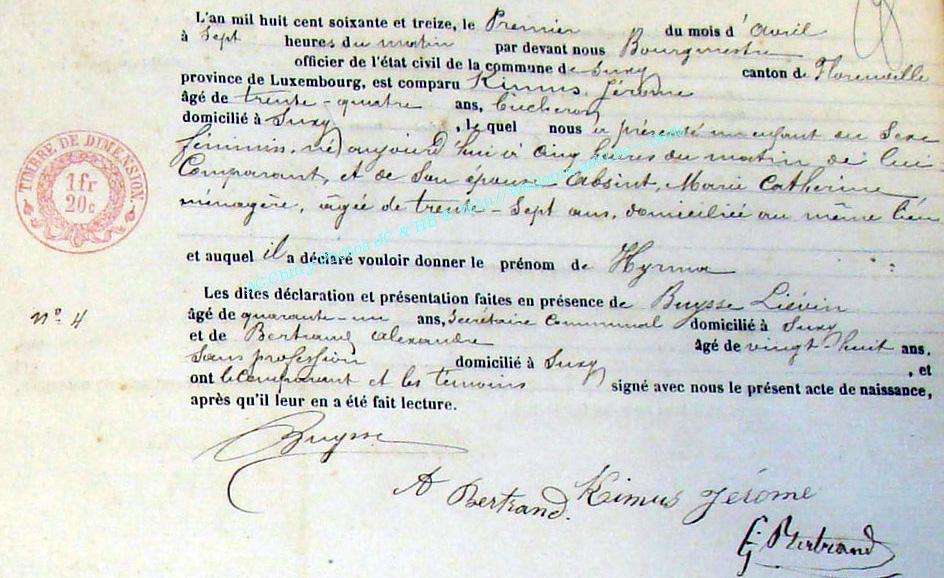 L'an mil huit cent soixante et treize, le Premier du mois d'avril
à Sept heures du matin par devant nous Bourgmestre
officier de l'état civil de la commune de Suxy canton de Florenville
province de Luxembourg, est comparu Kimus, Jérome
âgé de trente-quatre ans, bucheron
domicilié à Suxy, lequel nous a présenté un enfant du Sexe
féminin, né aujourd'hui à cinq heures du matin de lui
Comparant, et de son épouse Absint, Marie Catherine
ménagère, agée de trente-Sept ans, domiciliée au même lieu
et auquel il a déclaré vouloir donner le prénom de Hyrma
Les dites déclaration et présentation faites en présence de Buysse Liévin
âgé de quarante-un ans, Secrétaire Communal domicilié à Suxy
et de Bertrand Alexandre âgé de vingt-huit ans,
Sans profession domicilié à Suxy, et
ont le comparant et les temoins signé avec nous le présent acte de naissance,
après qu'il leur en a été fait lecture.
TIMBRE DE DIMENSION.
1 fr
20 c
n° 4
Buysse
A Bertrand. Kimus Jérome
Bertrand